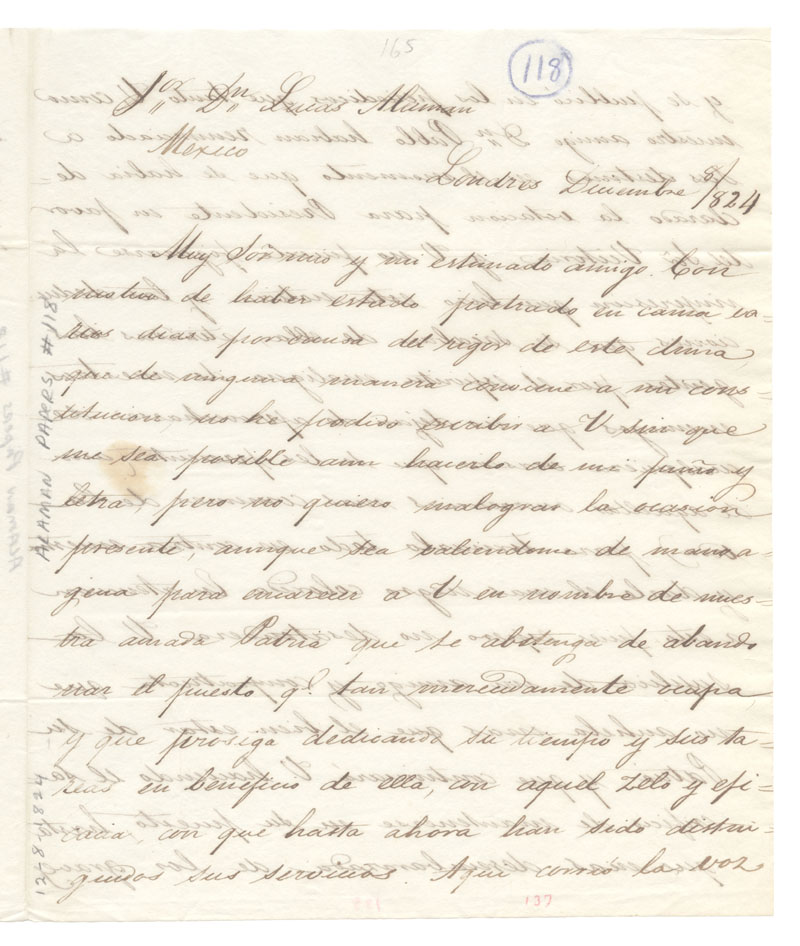 165
118
Sor Dn Lucas Alaman
Mexico
Londres Diciembre 8/824
Muy Sor mio y mi estimado amigo. Con
motivo de haber estado postrado en cama va=
rios dias por causa del rigor de este clima,
que de ninguna manera conviene a mi cons=
titucion no he podido escribir a V sin que
me sea posible aun hacerlo de mi puño y
letra, pero no quiero malograr la ocasion
presente, aunque sea valiendome de mano a=
gena para encarecer a V en nombre de nues=
tra amada Patria que se abstenga de abando
nar el puesto qe. tan merecidamente ocupa,
y que prosiga dedicando su tiempo y sus ta=
reas en beneficio de ella, con aquel zelo y efi=
cacia, con que hasta ahora han sido distin=
guidos sus servicios. Aqui corrió la voz
137
ALAMAN PAPERS, #118
12-8-1824